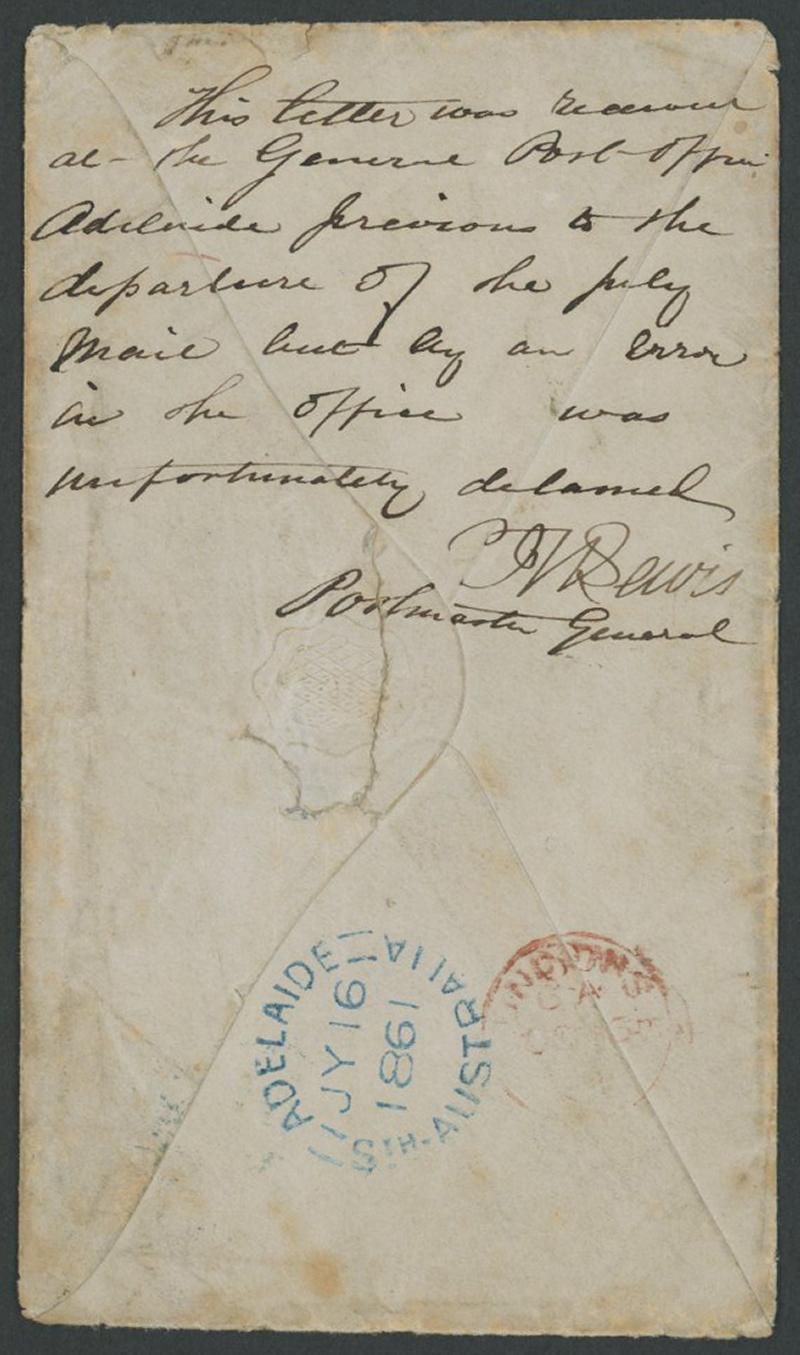 This letter was received
at the General Post Office
Adelaide previous to the
departure of the July
Mail but by an error
in the office was
unfortunately delayed
Lewis
Postmaster General
ADELAIDE
JY 16
1861
STH-AUSTRALIA